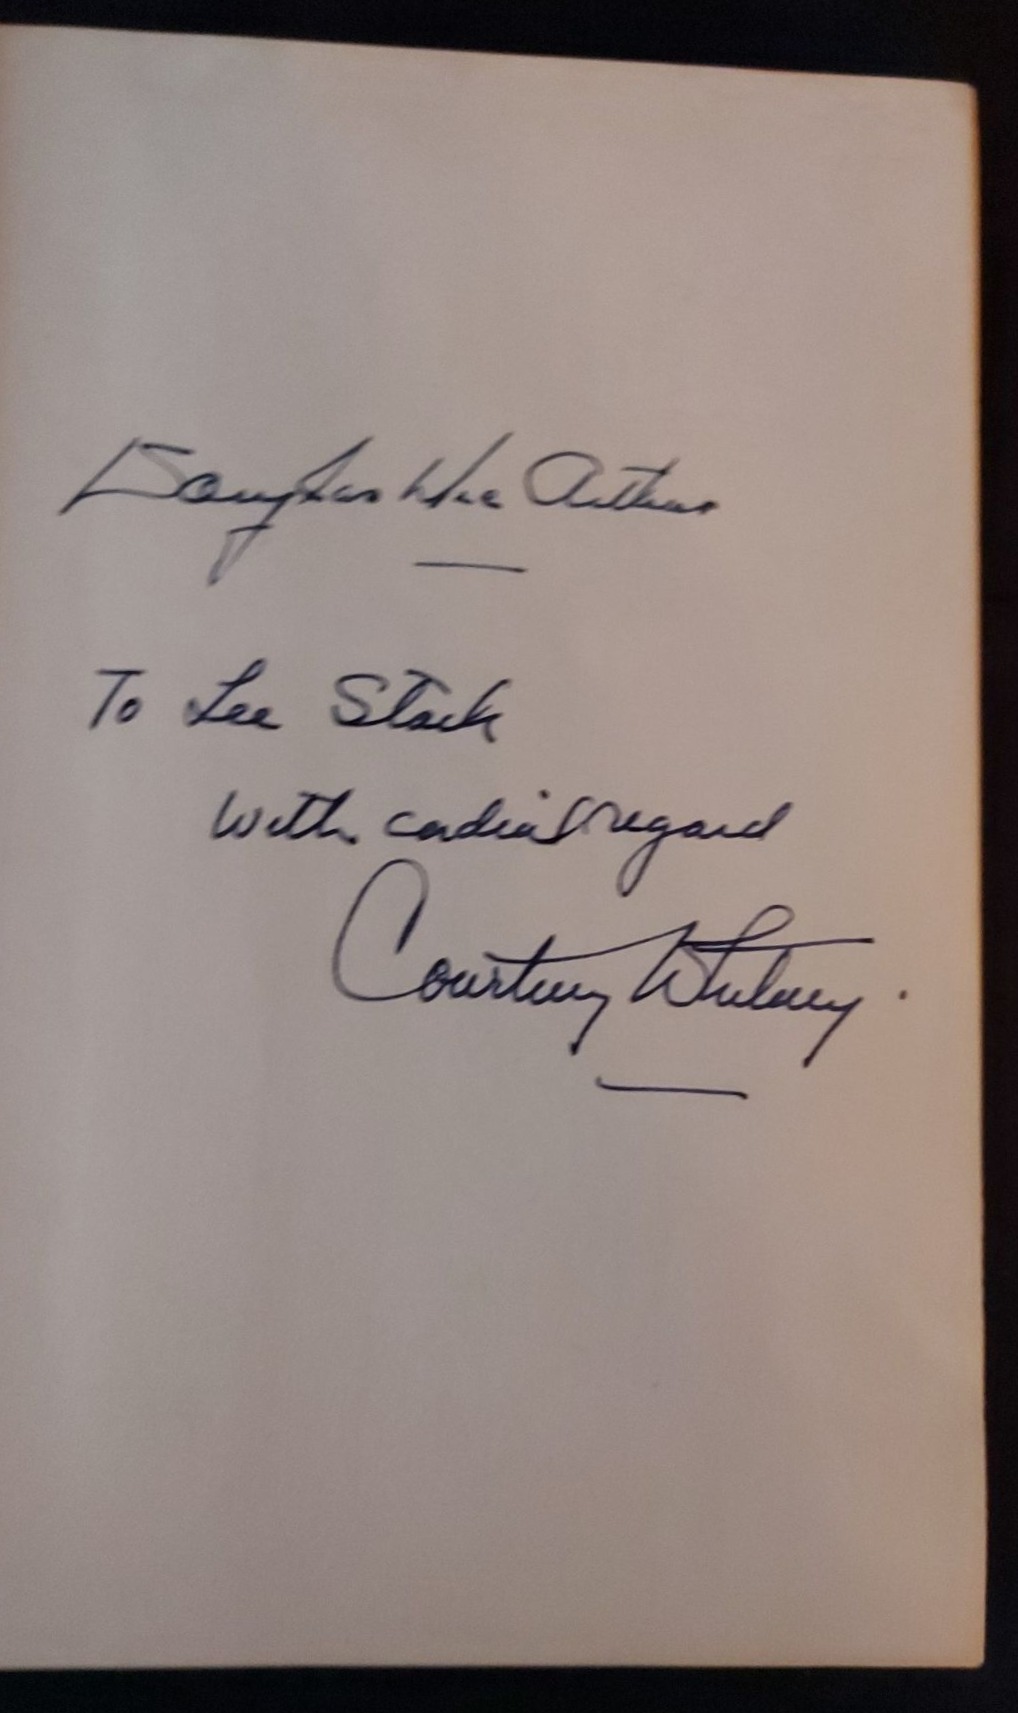 Douglas MacArthur
To Lee Stack
with cordial regard
Courtney Whitney.